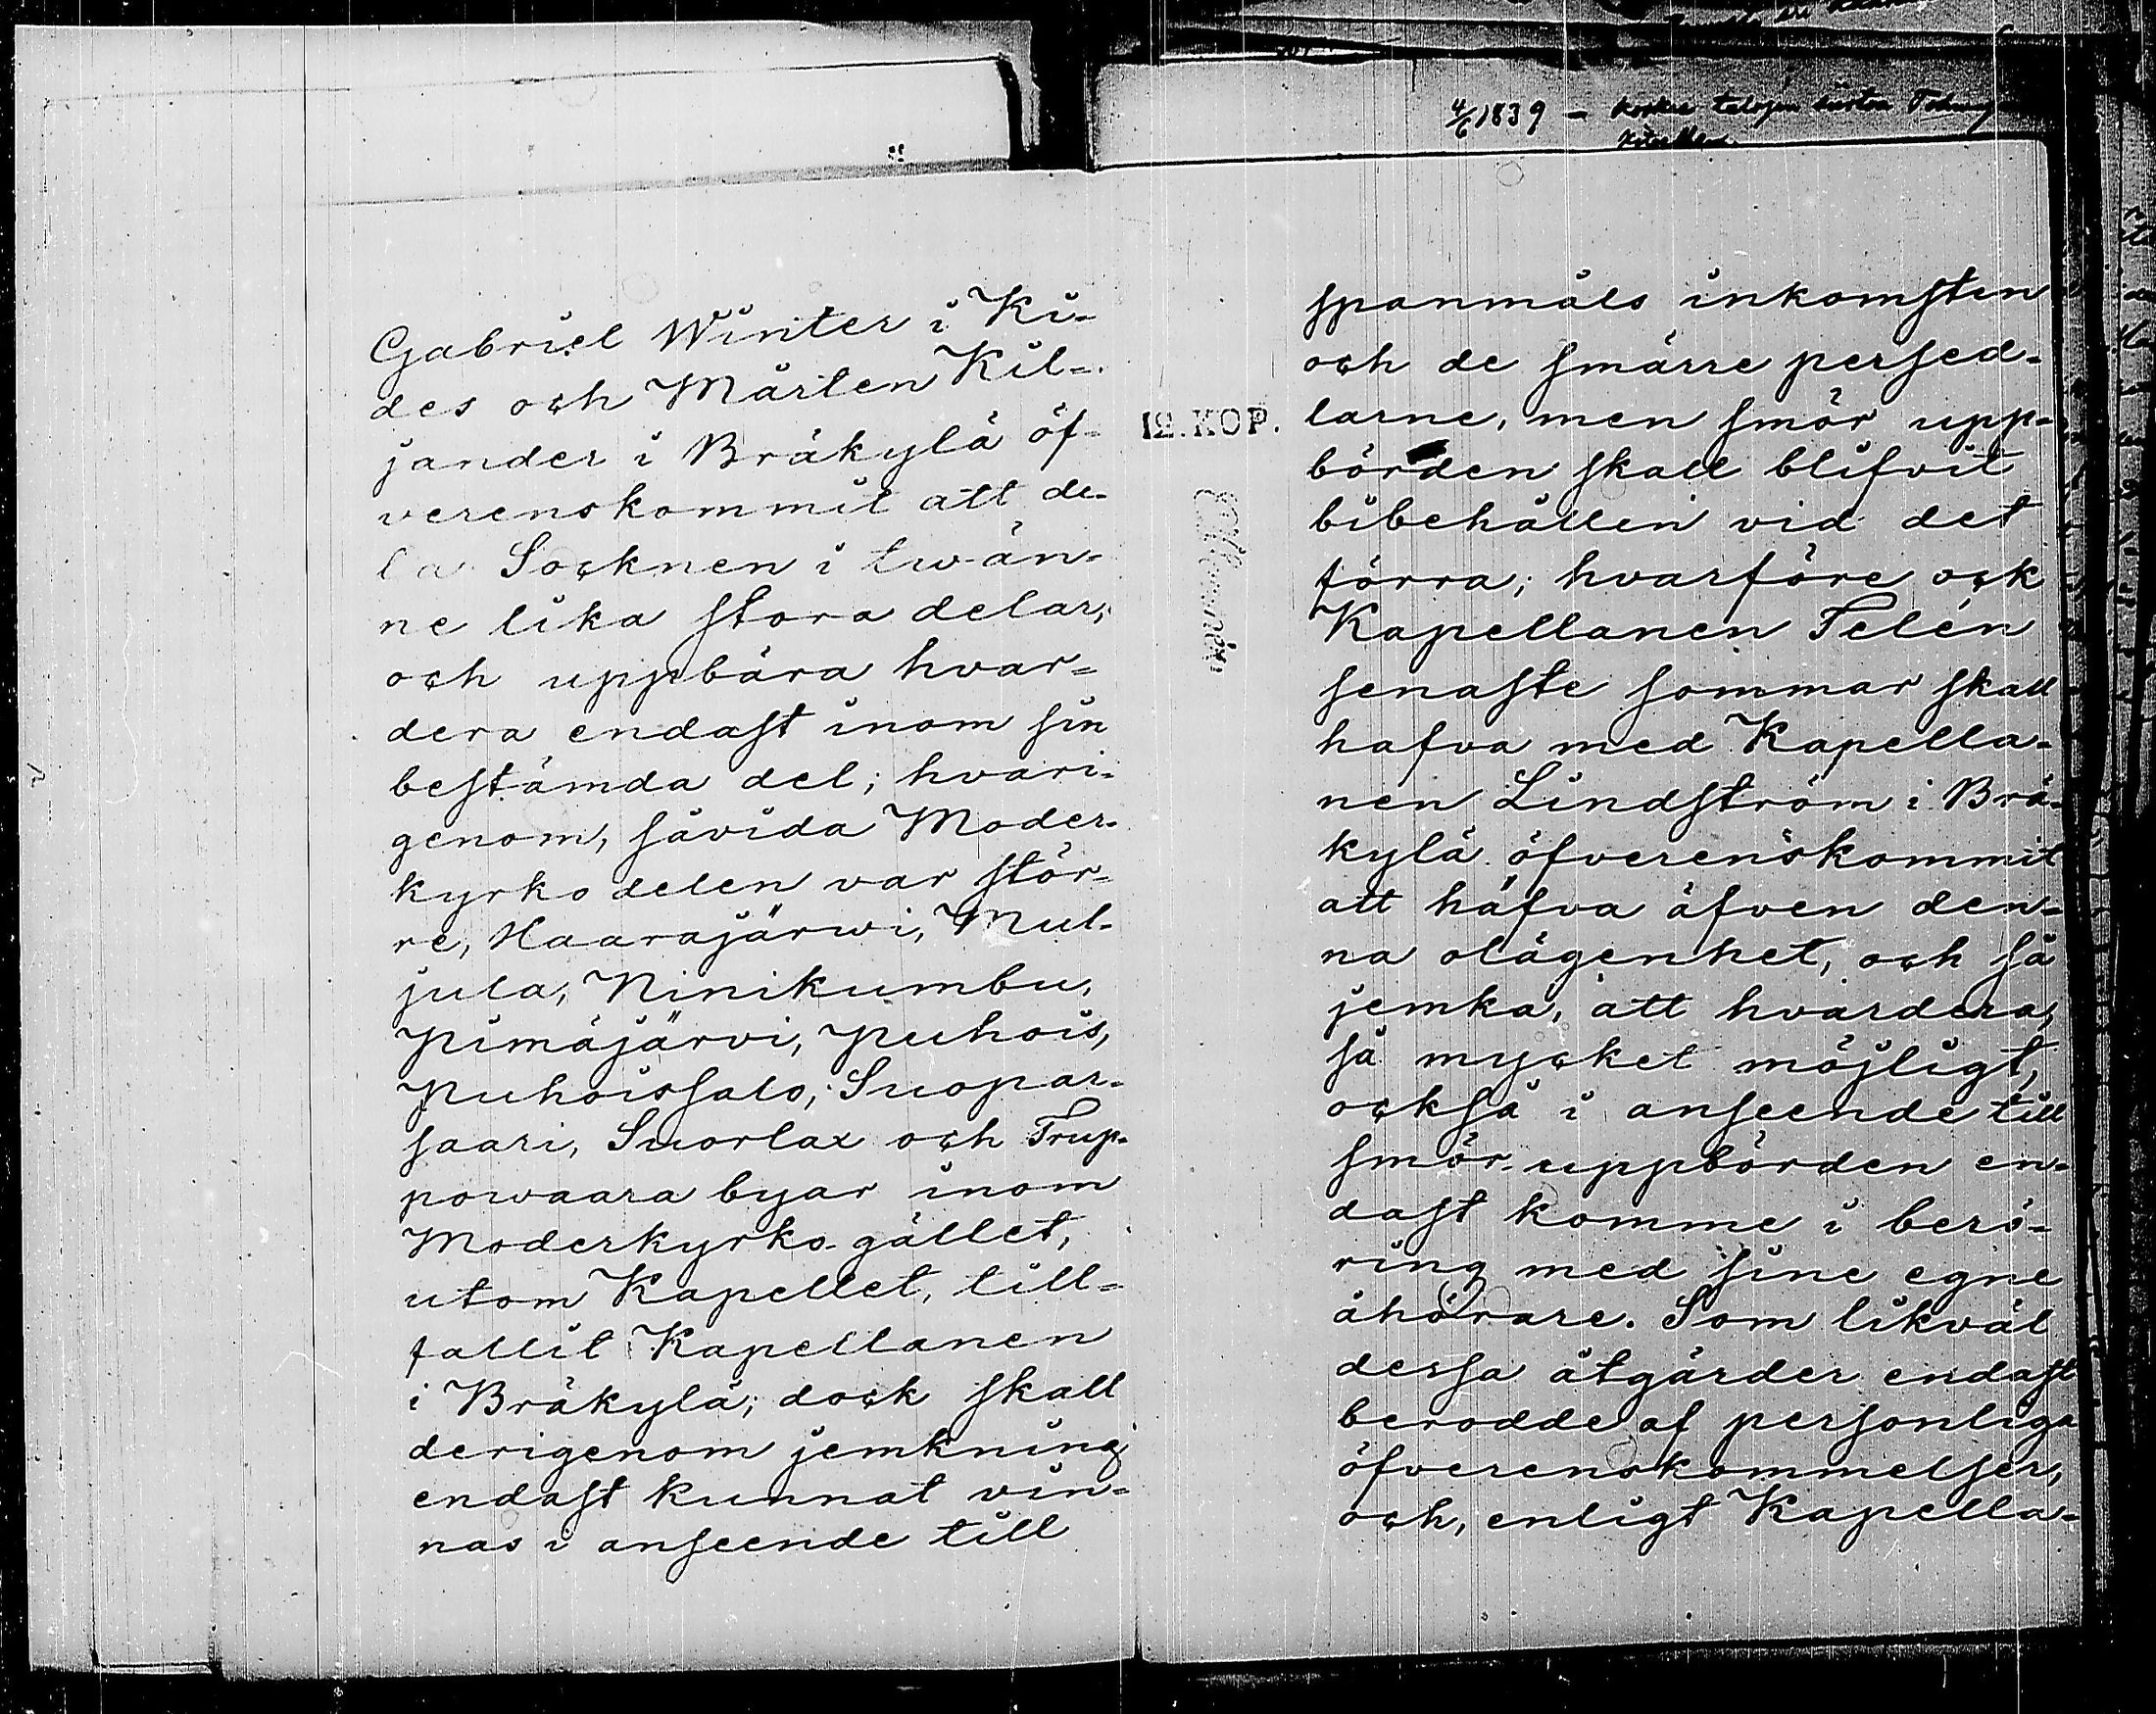 4/6 1839 –
Gabriel Winter i Ki-
des och Mårten Kil-
jander i Bräkylä öf-
verenskommit att de-
la Socknen i twän-
ne lika stora delar,
och uppbära hvar-
dera endast inom sin
bestämda del; hvari-
genom, såvida Moder-
kyrko delen var stör-
re, Haarajärwi, Mul-
jula, Ninikumbu,
Pimäjärvi, Puhois,
Puhoissalo, Suopar-
saari, Suorlax och Trup-
powaara byar inom
Moderkyrko-gället,
utom Kapellet, till-
fallit Kapellanen
i Bräkylä; dock skall
derigenom jemkning
endast kunnat vin-
nas i anseende till
12. KOP.
spanmåls inkomsten
och de smärre persed-
larne, men smör upp-
börden skall blifvit
bibehållen vid det
förra; hvarföre ock
Kapellanen Telén
senaste sommar skall
hafva med Kapella-
nen Lindström i Brä-
kylä öfverenskommit
att häfva äfven den-
na olägenhet, och så
jemka, att hvardera,
så mycket möjligt,
också i anseende till
smör-uppbörden en-
dast komme i berö-
ring med sine egne
åhörare. Som likväl
dessa åtgärder endast
berodde af personliga
öfverenskommelser,
och, enligt Kapella-